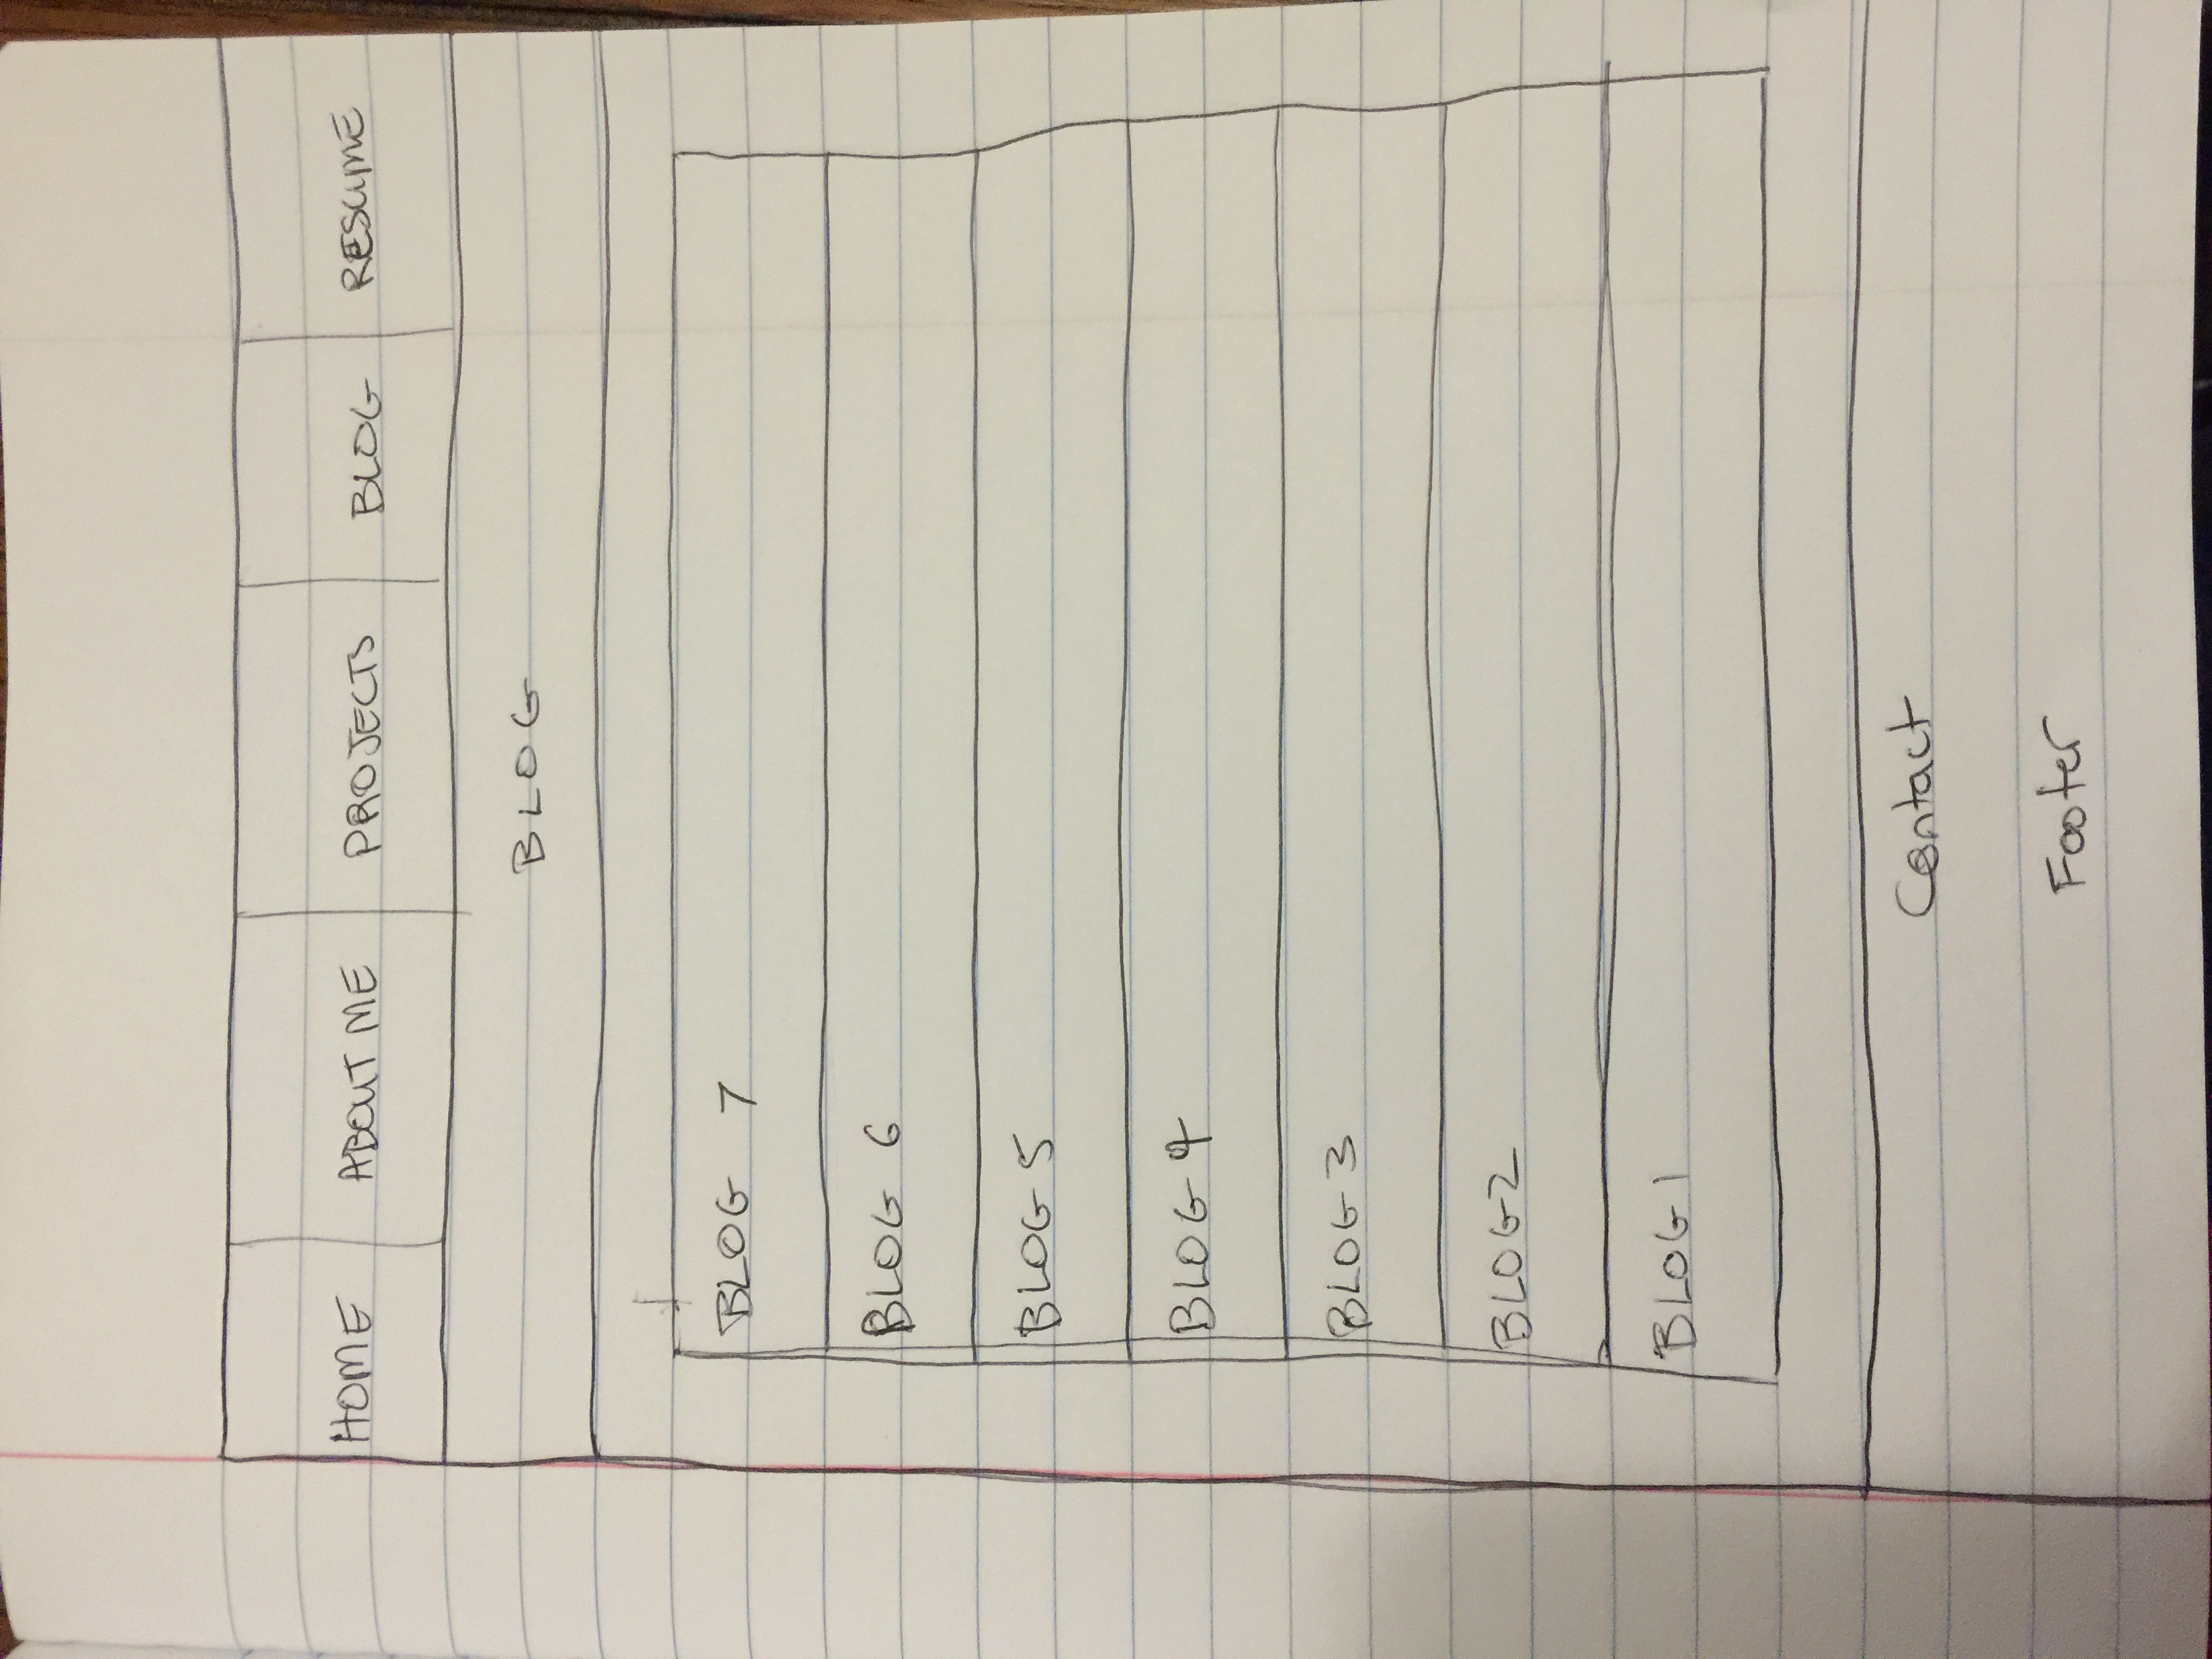 HOME ABOUT ME PROJECTS BLOG RESUME
BLOG
BLOG 7
BLOG 6
BLOG 5
BLOG 4
BLOG 3
BLOG 2
BLOG 1
Contact
Footer